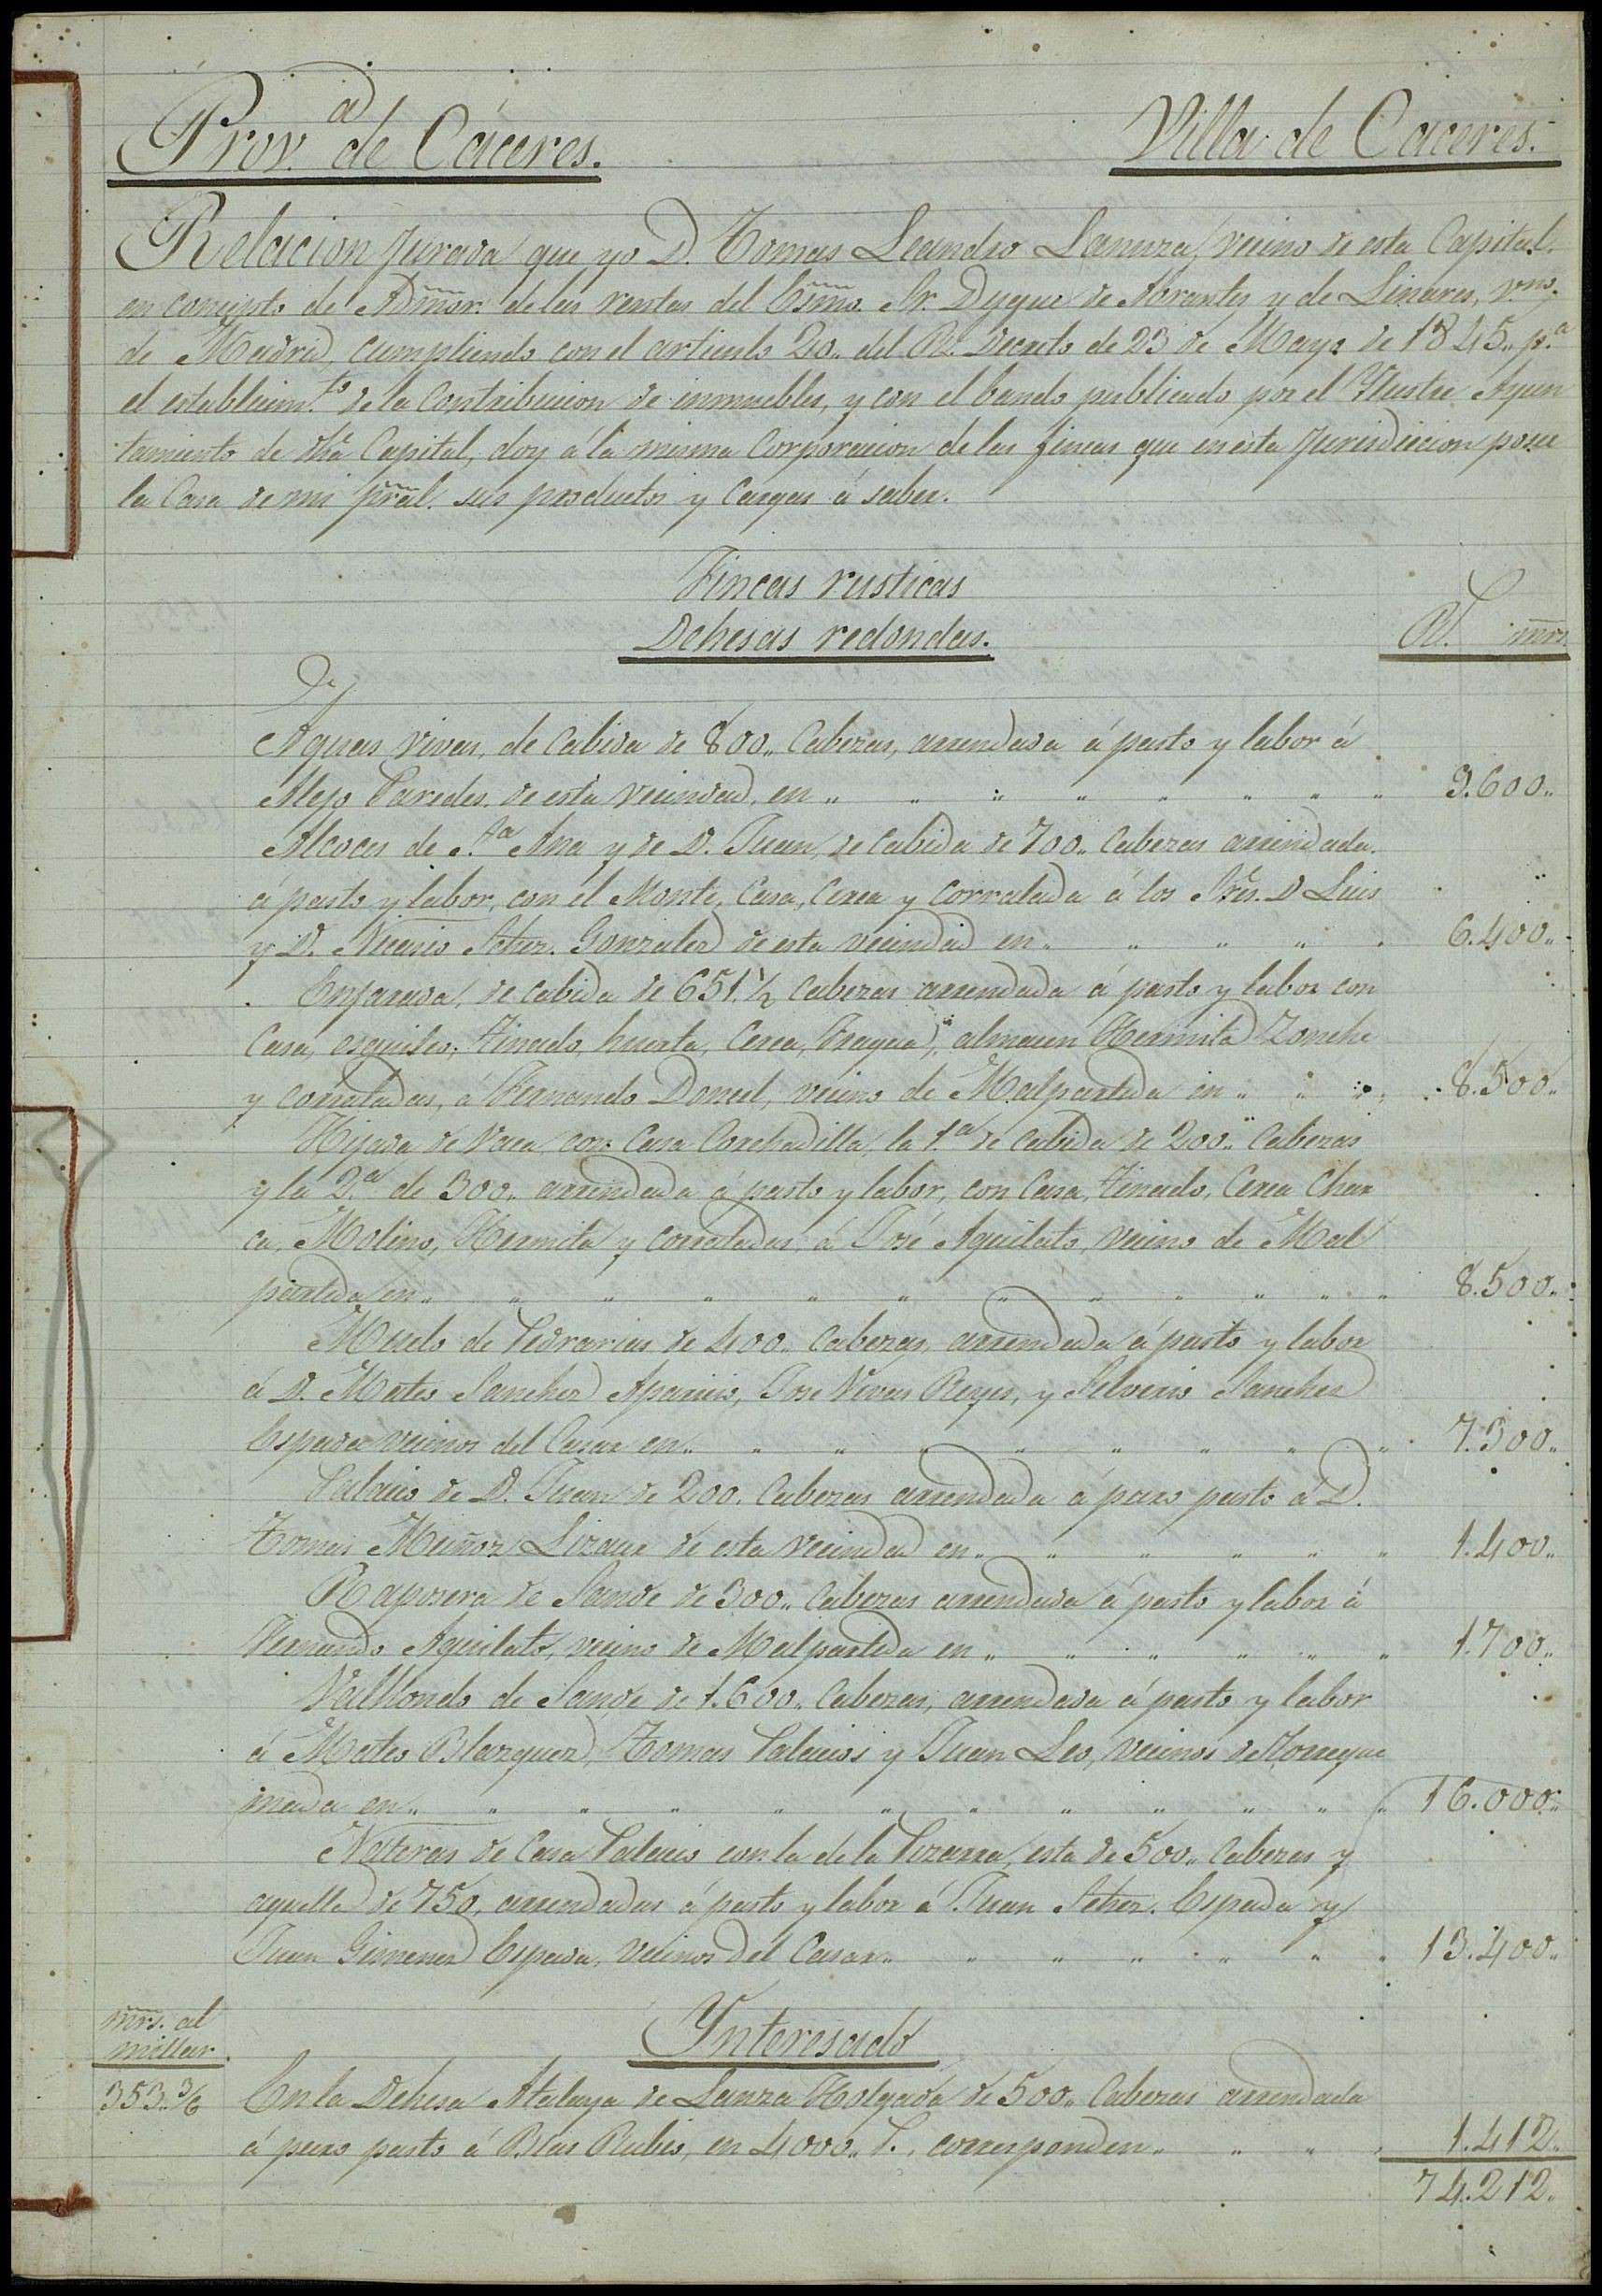 Prov.ª de Cáceres.
Villa de Caceres.
Relacion jurada que yo D. Tomas Leandro Lanuza, vecino de esta Capital,
en concepto de Admor. de las rentas del Esmo. Sr. Duque de Abrantes y de Linares, v.no
de Madrid, cumpliendo con el articulo 20,, del Rl. Decreto de 23 de Mayo de 1845,, p.ª
el establecim.to de la Contribucion de inmuebles, y con el bando publicado por el Yllustre Ayun
tamiento de dha Capital, doy á la misma Corporacion de las fincas que en esta Jurisdiccion posee
la Casa de mi pral. sus productos y cargas á saber.
Fincas rusticas
Dehesas redondas.
Rl. mrs.
Aguas vivas, de cabida de 800,, Cabezas, arrendada á pasto y labor á
Alejo Paredes, de esta vecindad, en ,, 3.600,,
Alcoces de S.ta Ana y de D. Juan, de cabida de 700,, Cabezas arrendada
á pasto y labor, con el Monte, Casa, Cerca y corralada á los Sres. D Luis
y D. Vicenio Schez. Gonzalez de esta vecindad en ,, 6.400,,
Enjarada, de cabida de 651.½ cabezas arrendada á pasto y labor con
Casa, esquileo, tinado, huerta, Cerca, Fragua, almacen Hermita Zonche
y corraladas, á Fernando Doncel, vecino de Malpartida en ,, 8.500,,
Hijada de Vaca, con Casa Corchadilla, la 1.ª de cabida de 200,, Cabezas
y la 2.ª de 300,, arrendada á pasto y labor, con Casa, tinado, Cerca Char
ca, Molino, Hermita y corraladas, á José Aguilato, vecino de Mal
partida en ,, 8.500,,
Muelo de Pedrarias de 400,, Cabezas, arrendada á pasto y labor
á D. Mateo Sanchez Aparicio, Jose Vivas Reyes, y Silverio Sanchez
Espada vecinos del Casar en ,, 7.300,,
Palacio de D. Juan de 200,, Cabezas arrendada á puro pasto á D.
Tomas Muñoz Lizaur de esta vecindad en ,, 1.400,,
Raposera de Sande de 300,, Cabezas arrendada á pasto y labor á
Fernando Aguilato, vecino de Malpartida en ,, 1.700,,
Valhondo de Sande de 1.600,, Cabezas, arrendada á pasto y labor
á Mateo Blazquez, Tomas Palacios y Juan Leo, vecinos de Torreque
mada en ,, 16.000,,
Nateras de Casa Palacio con la de la Pizarra, esta de 500,, Cabezas y
aquella de 750, arrendadas á pasto y labor á Juan Schez. Espada y
Juan Gimenez Espada, vecinos del Casar ,, 13.400,,
mrs. al
millar
Ynteresado
353.,3/6 En la Dehesa Atalaya de Lanza Holgada de 500,, Cabezas arrendada
á puro pasto á Blas Rubio, en 4000,, r., corresponden ,, 1.412,,
74.212,,